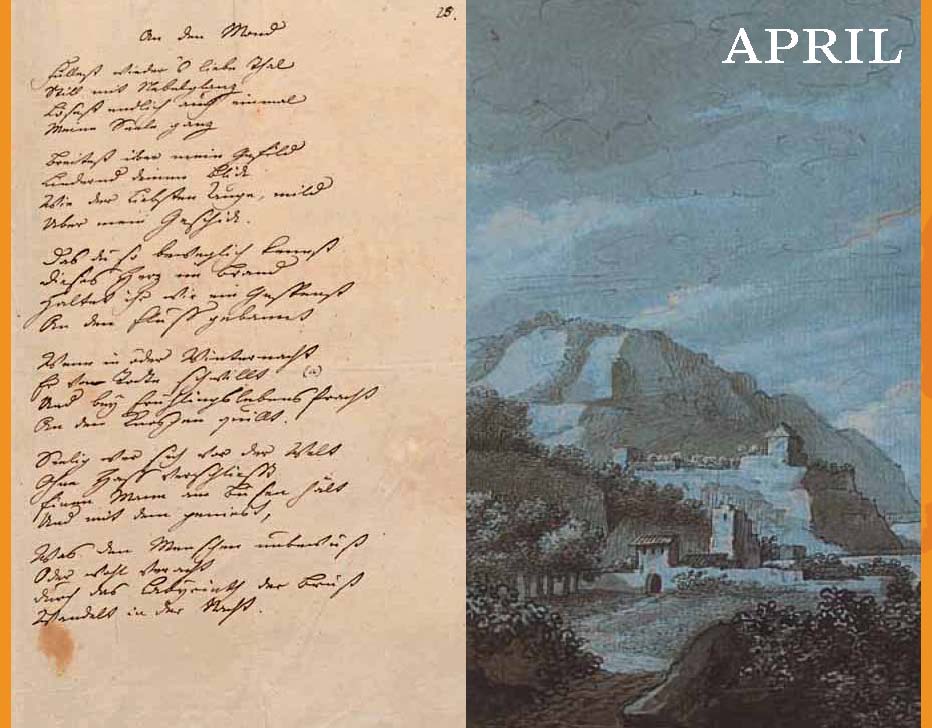 28.
An den Mond
Füllest wieder's liebe Thal
Still mit Nebelglanz
Lösest endlich auch einmal
Meine Seele ganz
Breitest über mein Gefild
Lindernd deinen Blick
Wie der Liebsten Auge, mild
Über mein Geschick.
Das du so beweglich kennst
Dieses Herz im Brand
Haltet ihr wie ein Gespenst
An den Fluß gebannt
Wenn in öder Winternacht
Er vom Todte schwillt
Und bey Frühlingslebens Pracht
An den Knospen quillt.
Seelig wer sich vor der Welt
Ohne Haß verschließt
Einen Mann am Busen hält
Und mit dem genießt,
Was den Menschen unbewußt
Oder wohl veracht
Durch das Labyrinth der Brust
Wandelt in der Nacht.
APRIL